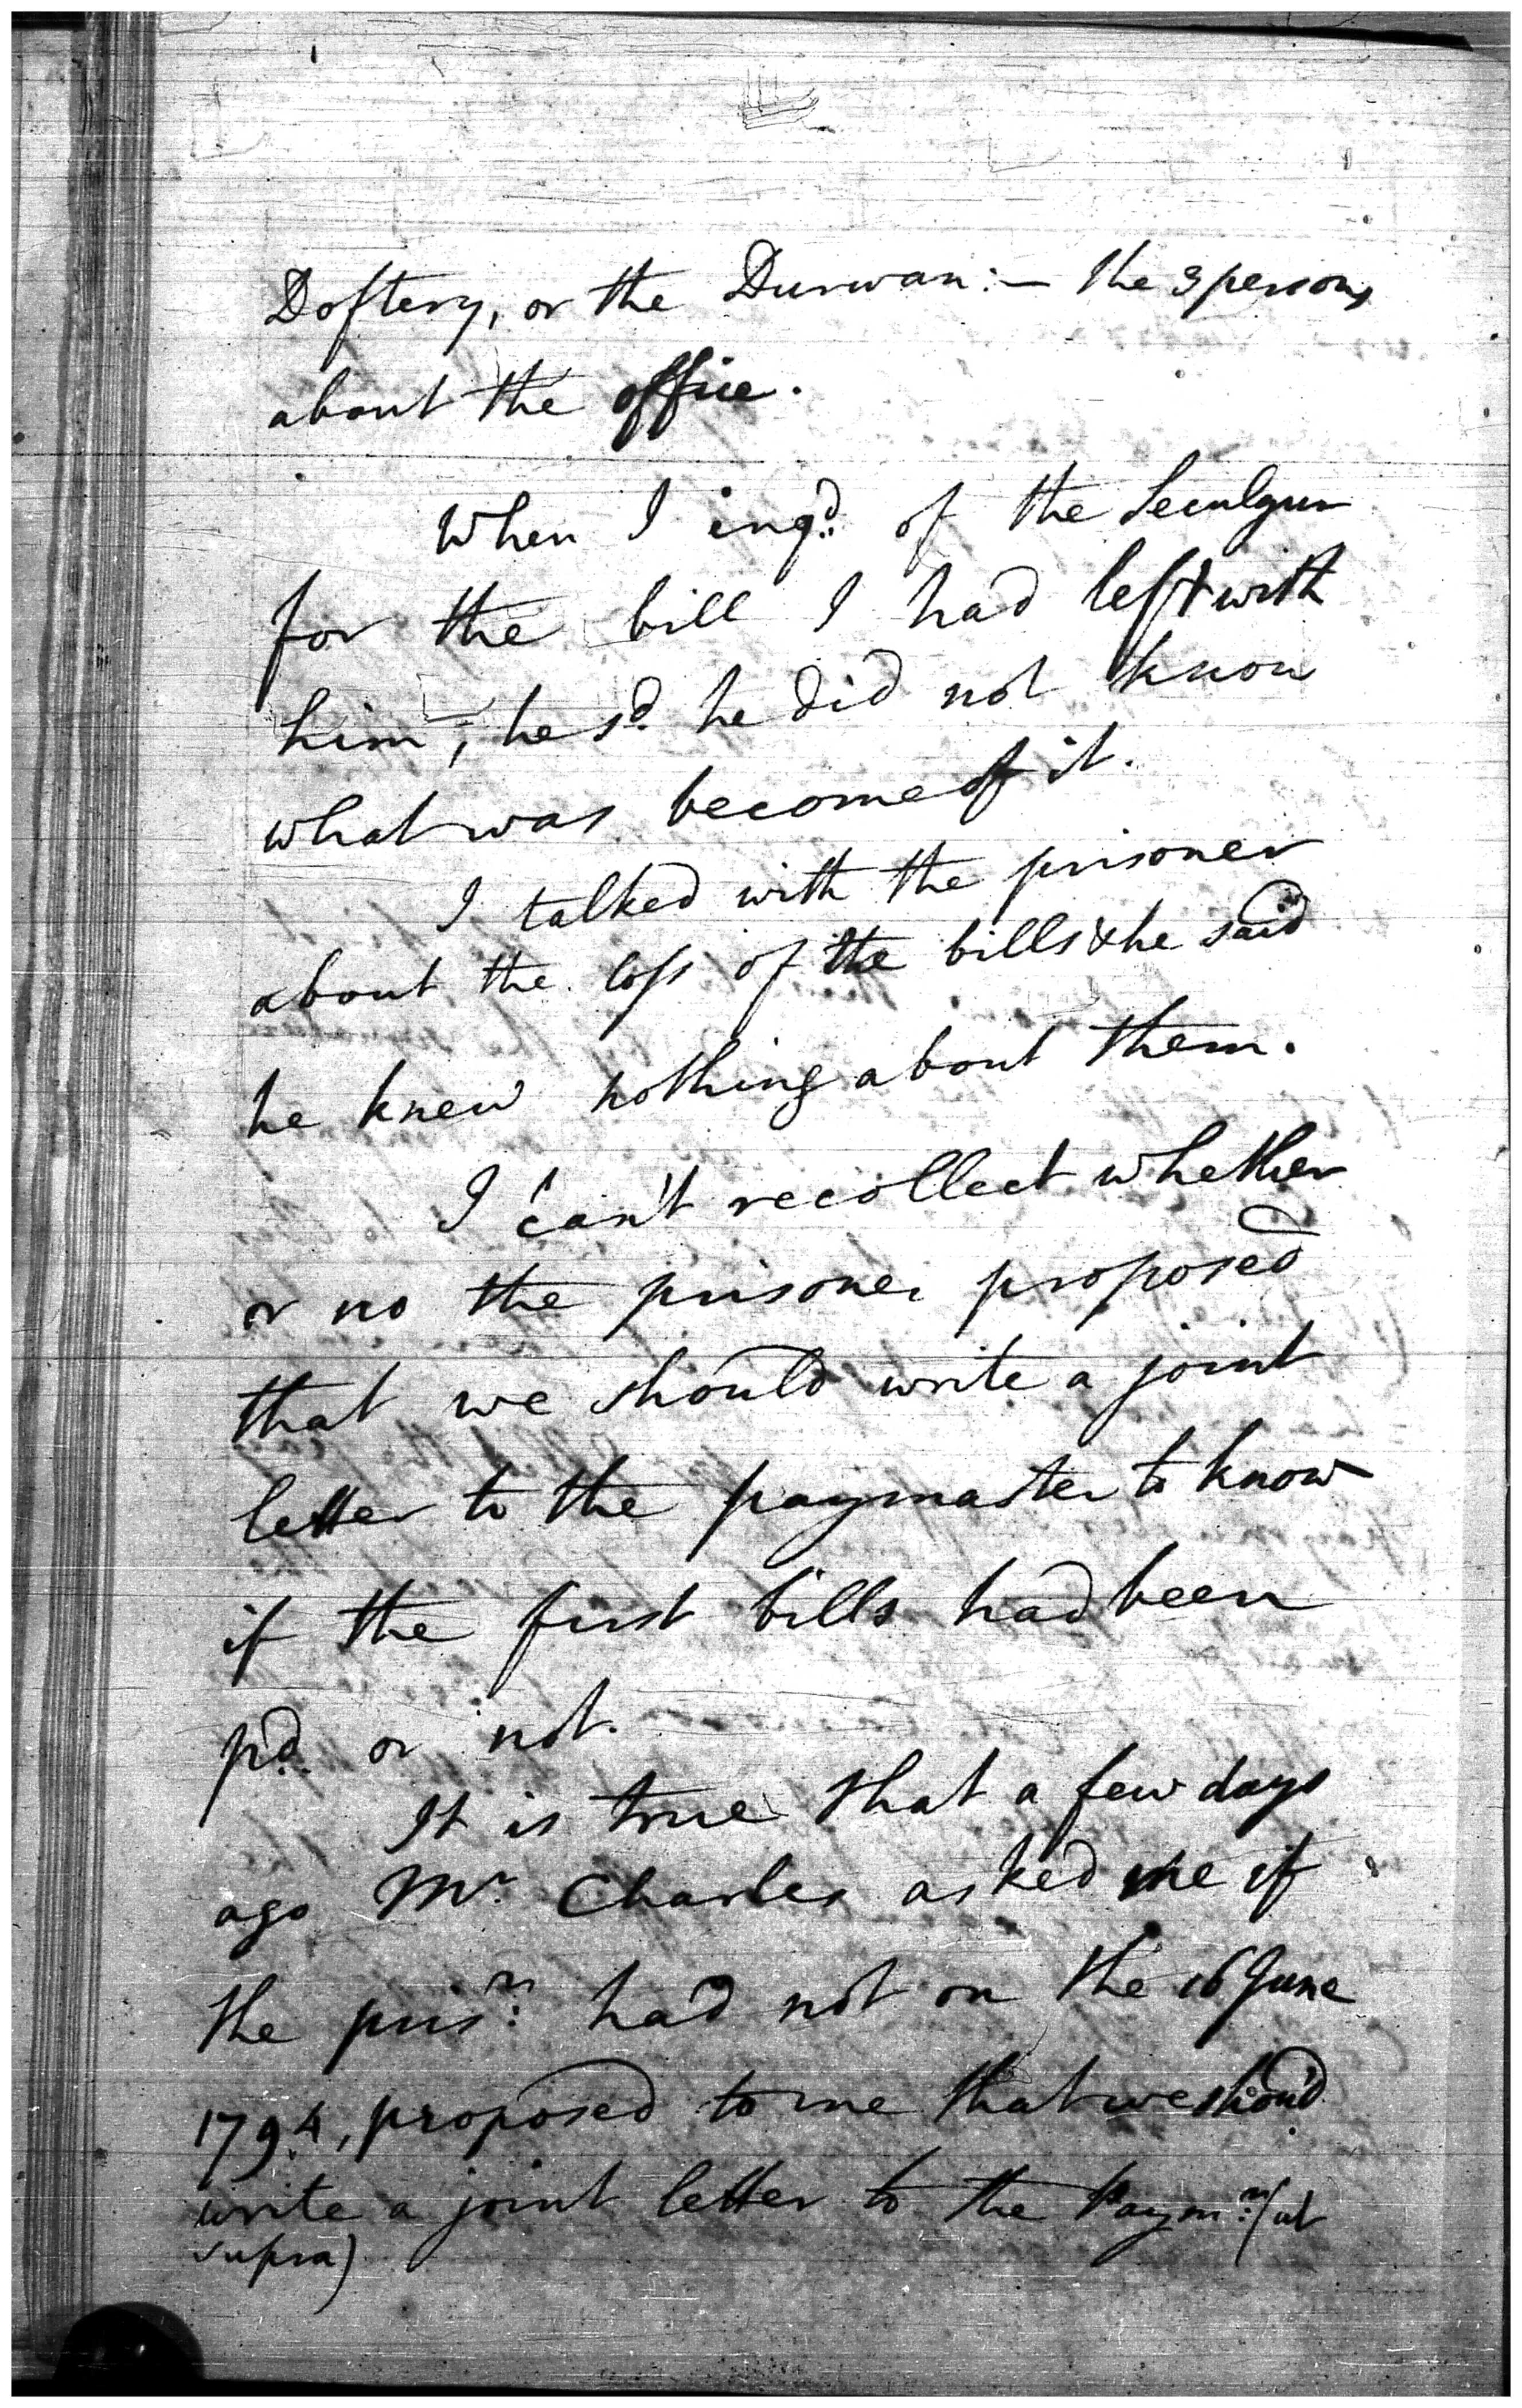 Doftery, or the Durwan:— the 3 persons
about the office.
When I inqd. of the Seculgur
for the bill I had left with
him, he sd. he did not know
what was become of it.
I talked with the prisoner
about the loss of the bills & he said
he knew nothing about them.
I can't recollect whether
or no the prisoner proposed
that we should write a joint
letter to the paymaster to know
if the first bills had been
pd. or not.
It is true that a few days
ago Mr. Charles asked me if
the prisr. had not on the 16 June
1794, proposed to me that we shou'd
write a joint letter to the Paymr. (ut
supra)